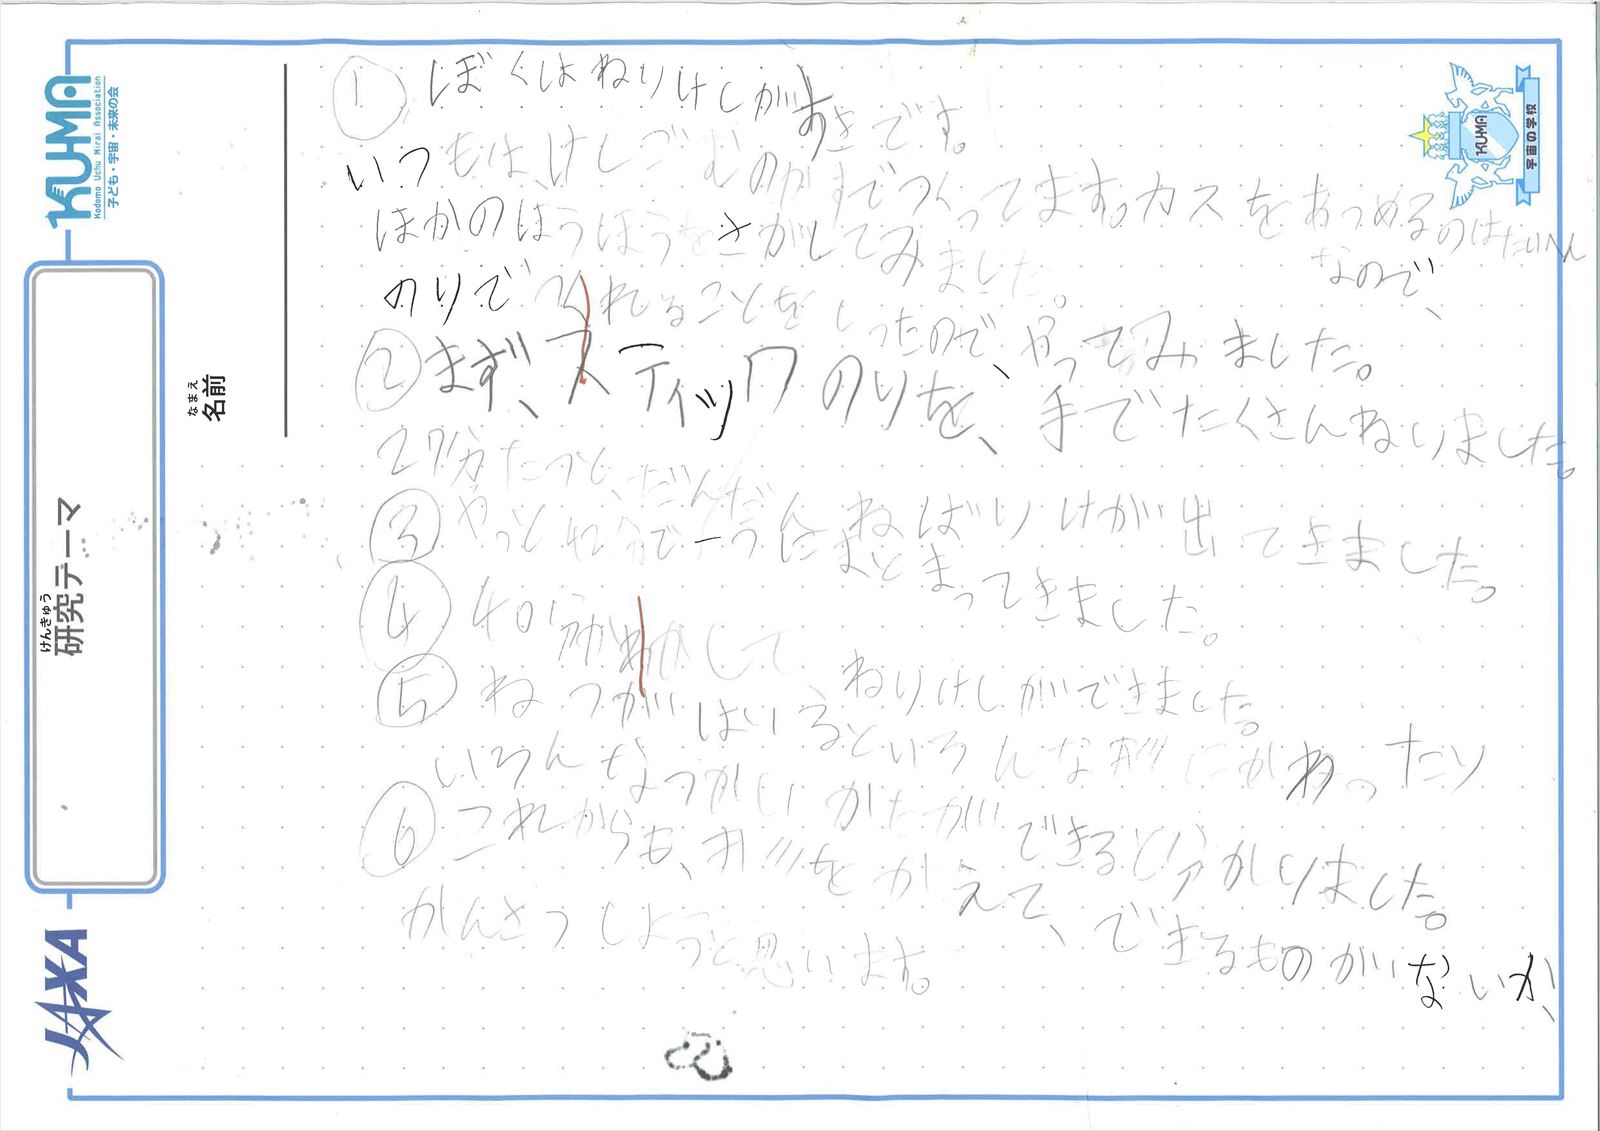 ① ぼくはねりけしがすきです。
いつもは、けしごむのかすでつくってます。カスをあつめるのはたいへん
なので、
ほかのほうほうをさがしてみました。
のりでつくれることをしったので、やってみました。
② まず、スティックのりを、手でたくさんねりました。
27分たつと、だんだんねばりけが出てきました。
③ やっと 分で一つにまとまってきました。
④ 40分 かして
ねりけしができました。
⑤ ねつがはいるといろんな形にかわったり
いろんなつかいかたができると分かりました。
⑥ これからも、形をかえて、できるものがないか、
かんさつしようと思います。
KUMA
Kodomo Uchu Mirai Association
子ども・宇宙・未来の会
けんきゅう
研究テーマ
なまえ
名前
JAXA
KUMA
宇宙の学校